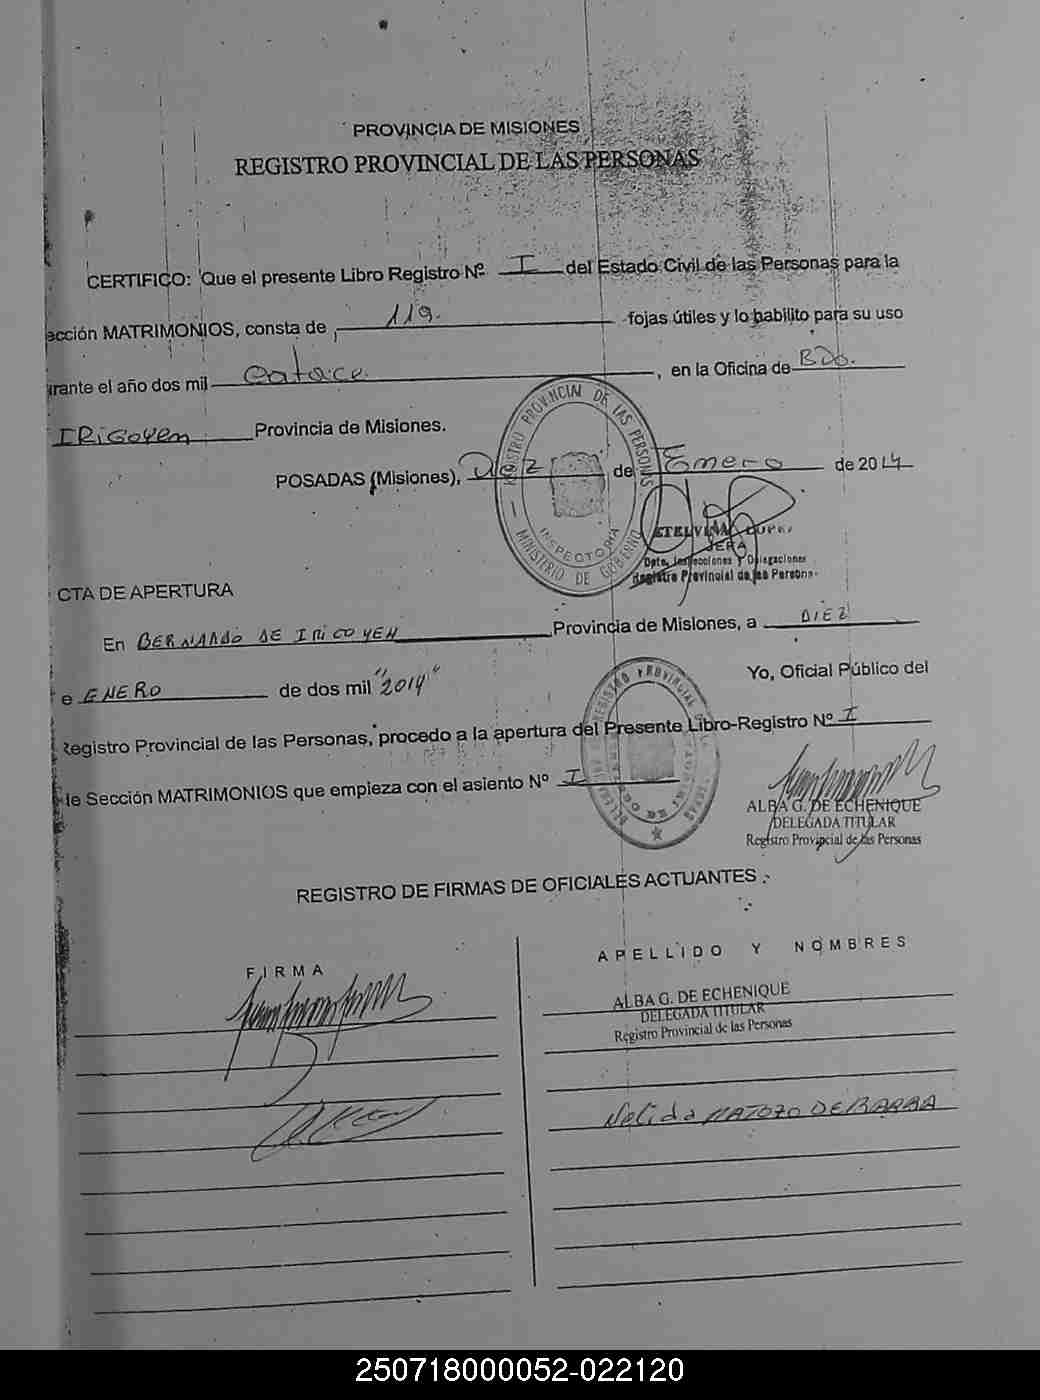 PROVINCIA DE MISIONES
REGISTRO PROVINCIAL DE LAS PERSONAS
CERTIFICO: Que el presente Libro Registro Nº I del Estado Civil de las Personas para la
ección MATRIMONIOS, consta de 119. fojas útiles y lo habilito para su uso
urante el año dos mil Catorce, en la Oficina de Bdo.
IRIGOYEN Provincia de Misiones.
POSADAS (Misiones), Diez de Enero de 2014
REGISTRO PROVINCIAL DE LAS PERSONAS
INSPECTORIA
MINISTERIO DE GOBERNO
ETELVINA
JEFA
Dpto. Inspecciones y Delegaciones
Registro Provincial de las Personas
CTA DE APERTURA
En BERNARDO DE IRIGOYEN Provincia de Misiones, a DIEZ
e ENERO de dos mil "2014" Yo, Oficial Público del
Registro Provincial de las Personas, procedo a la apertura del Presente Libro-Registro Nº I
de Sección MATRIMONIOS que empieza con el asiento Nº I
ALBA G. DE ECHENIQUE
DELEGADA TITULAR
Registro Provincial de las Personas
REGISTRO DE FIRMAS DE OFICIALES ACTUANTES
FIRMA
APELLIDO Y NOMBRES
ALBA G. DE ECHENIQUE
DELEGADA TITULAR
Registro Provincial de las Personas
Nelida MATOZO DE BARBA
250718000052-022120